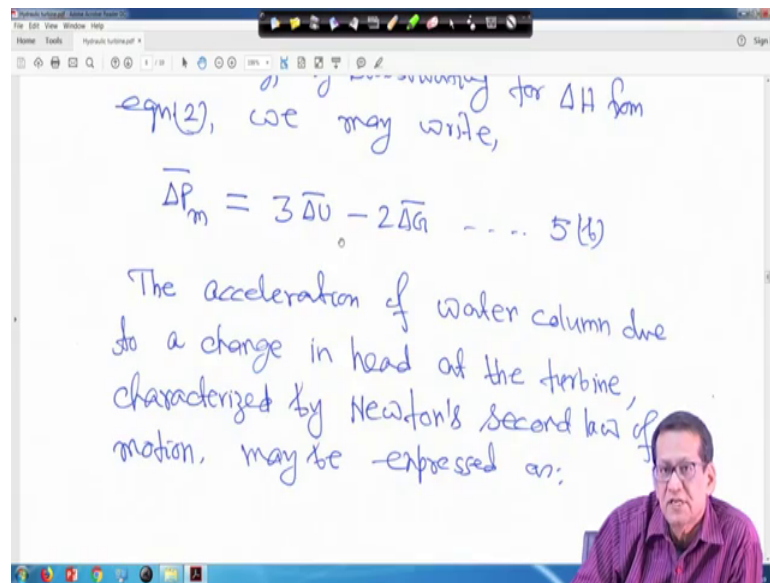 Hydraulic turbine.pdf - Adobe Acrobat Reader DC
File Edit View Window Help
Home Tools Hydraulic turbine.pdf × Sign
for ΔH from
eqn(2), we may write,
$\overline{\Delta P}_m = 3\overline{\Delta U} - 2\overline{\Delta G}$ .... 5(b)
The acceleration of water column due
to a change in head at the turbine,
characterized by Newton's second law of
motion, may be expressed as: